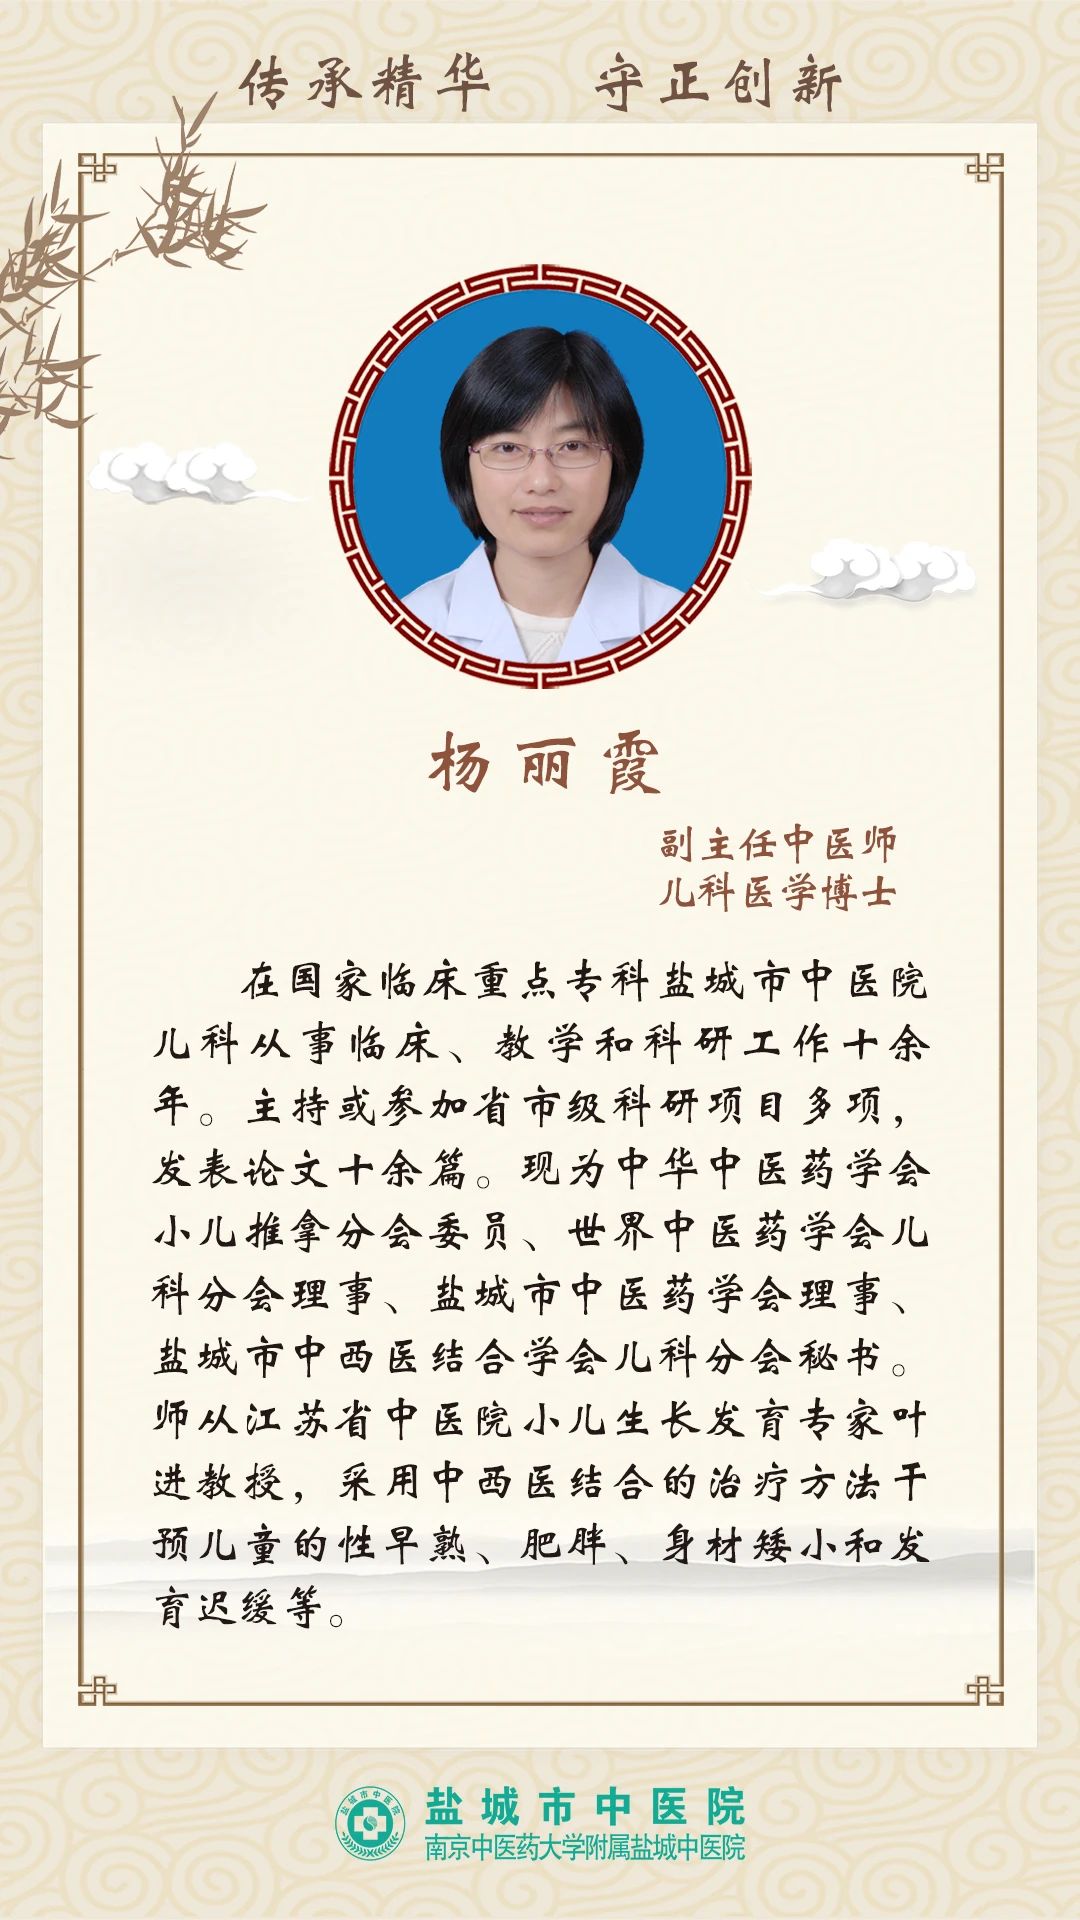 传承精华 守正创新
杨丽霞
副主任中医师
儿科医学博士
在国家临床重点专科盐城市中医院
儿科从事临床、教学和科研工作十余
年。主持或参加省市级科研项目多项，
发表论文十余篇。现为中华中医药学会
小儿推拿分会委员、世界中医药学会儿
科分会理事、盐城市中医药学会理事、
盐城市中西医结合学会儿科分会秘书。
师从江苏省中医院小儿生长发育专家叶
进教授，采用中西医结合的治疗方法干
预儿童的性早熟、肥胖、身材矮小和发
育迟缓等。
盐城市中医院
盐城市中医院
南京中医药大学附属盐城中医院